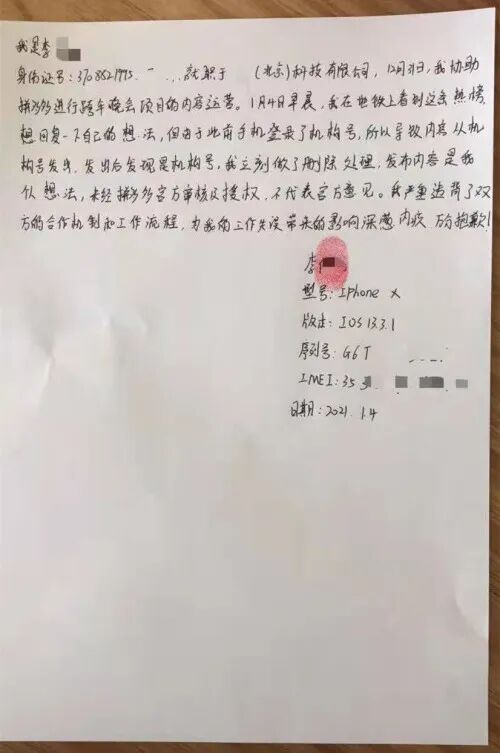 我是李
身份证号:3708621995. 就职于 (北京)科技有限公司，12月31日，我协助
拼多多进行跨年晚会项目的内容运营。1月4日早晨，我在地铁上看到这条热榜，
想回复一下自己的想法，但由于此前手机登录了机构号，所以导致内容从机
构号发出，发出后发现是机构号，我立刻做了删除处理，发布内容是我
个人想法，未经拼多多官方审核及授权，不代表官方意见。我严重违背了双
方的合作机制和工作流程，为我的工作失误带来的影响深感内疚 万分抱歉！
李
型号:Iphone X
版本:IOS13.3.1
序列号:G6T
IMEI:35
日期:2021.1.4